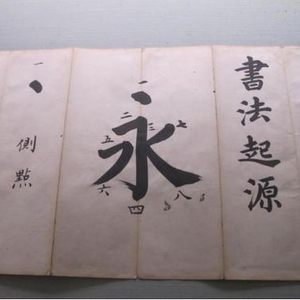 書法起源
永
一
二
三
四
五
六
七
八
一
側點